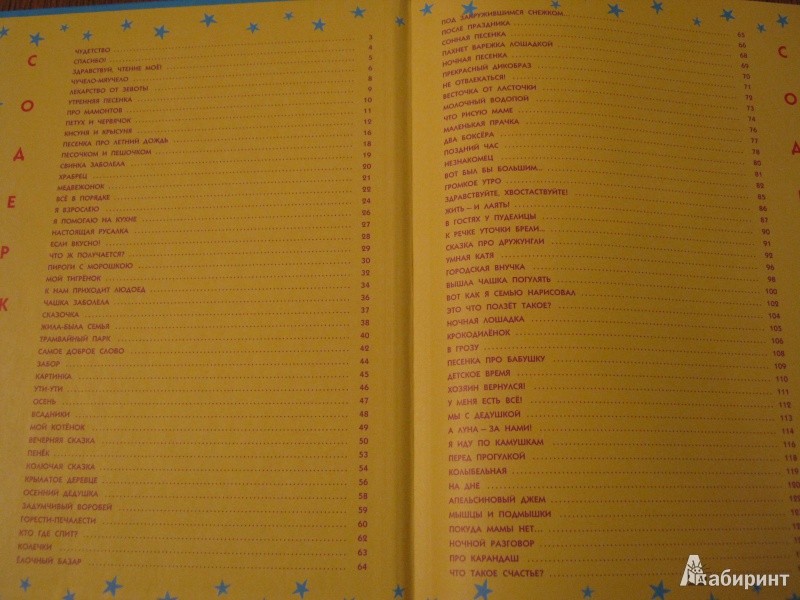 СОДЕРЖ
ЧУДЕТСТВО 3
СПАСИБО! 4
ЗДРАВСТВУЙ, ЧТЕНИЕ МОЁ! 5
ЧУЧЕЛО-МЯУЧЕЛО 6
ЛЕКАРСТВО ОТ ЗЕВОТЫ 8
УТРЕННЯЯ ПЕСЕНКА 9
ПРО МАМОНТОВ 10
ПЕТУХ И ЧЕРВЯЧОК 11
КИСУНЯ И КРЫСУНЯ 12
ПЕСЕНКА ПРО ЛЕТНИЙ ДОЖДЬ 16
ПЕСОЧКОМ И ПЕШОЧКОМ 18
СВИНКА ЗАБОЛЕЛА 19
ХРАБРЕЦ 20
МЕДВЕЖОНОК 21
ВСЁ В ПОРЯДКЕ 22
Я ВЗРОСЛЕЮ 24
Я ПОМОГАЮ НА КУХНЕ 26
НАСТОЯЩАЯ РУСАЛКА 27
ЕСЛИ ВКУСНО! 28
ЧТО Ж ПОЛУЧАЕТСЯ? 29
ПИРОГИ С МОРОШКОЮ 30
МОЙ ТИГРЁНОК 32
К НАМ ПРИХОДИТ ЛЮДОЕД 34
ЧАШКА ЗАБОЛЕЛА 36
СКАЗОЧКА 37
ЖИЛА-БЫЛА СЕМЬЯ 38
ТРАМВАЙНЫЙ ПАРК 40
САМОЕ ДОБРОЕ СЛОВО 42
ЗАБОР 44
КАРТИНКА 45
УТИ-УТИ 46
ОСЕНЬ 47
ВСАДНИКИ 48
МОЙ КОТЁНОК 49
ВЕЧЕРНЯЯ СКАЗКА 50
ПЕНЁК 53
КОЛЮЧАЯ СКАЗКА 54
КРЫЛАТОЕ ДЕРЕВЦЕ 56
ОСЕННИЙ ДЕДУШКА 58
ЗАДУМЧИВЫЙ ВОРОБЕЙ 59
ГОРЕСТИ-ПЕЧАЛЕСТИ 60
КТО ГДЕ СПИТ? 62
КОЛЕЧКИ 63
ЁЛОЧНЫЙ БАЗАР 64
ПОД ЗАКРУЖИВШИМСЯ СНЕЖКОМ...
ПОСЛЕ ПРАЗДНИКА 65
СОННАЯ ПЕСЕНКА 66
ПАХНЕТ ВАРЕЖКА ЛОШАДКОЙ 68
НОЧНАЯ ПЕСЕНКА 69
ПРЕКРАСНЫЙ ДИКОБРАЗ 70
НЕ ОТВЛЕКАТЬСЯ! 71
ВЕСТОЧКА ОТ ЛАСТОЧКИ 72
МОЛОЧНЫЙ ВОДОПОЙ 73
ЧТО РИСУЮ МАМЕ 74
МАЛЕНЬКАЯ ПРАЧКА 76
ДВА БОКСЁРА 77
ПОЗДНИЙ ЧАС 78
НЕЗНАКОМЕЦ 80
ВОТ БЫЛ БЫ БОЛЬШИМ... 81
ГРОМКОЕ УТРО 82
ЗДРАВСТВУЙТЕ, ХВОСТАСТВУЙТЕ! 85
ЖИТЬ — И ЛАЯТЬ! 86
В ГОСТЯХ У ПУДЕЛИЦЫ 87
К РЕЧКЕ УТОЧКИ БРЕЛИ... 90
СКАЗКА ПРО ДРУЖУНГЛИ 91
УМНАЯ КАТЯ 92
ГОРОДСКАЯ ВНУЧКА 96
ВЫШЛА ЧАШКА ПОГУЛЯТЬ 98
ВОТ КАК Я СЕМЬЮ НАРИСОВАЛ 100
ЭТО ЧТО ПОЛЗЁТ ТАКОЕ? 102
НОЧНАЯ ЛОШАДКА 104
КРОКОДИЛЁНОК 105
В ГРОЗУ 106
ПЕСЕНКА ПРО БАБУШКУ 108
ДЕТСКОЕ ВРЕМЯ 109
ХОЗЯИН ВЕРНУЛСЯ! 110
У МЕНЯ ЕСТЬ ВСЁ! 111
МЫ С ДЕДУШКОЙ 112
А ЛУНА — ЗА НАМИ! 113
Я ИДУ ПО КАМУШКАМ 114
ПЕРЕД ПРОГУЛКОЙ 116
КОЛЫБЕЛЬНАЯ 118
НА ДНЕ 119
АПЕЛЬСИНОВЫЙ ДЖЕМ 120
МЫШЦЫ И ПОДМЫШКИ
ПОКУДА МАМЫ НЕТ...
НОЧНОЙ РАЗГОВОР
ПРО КАРАНДАШ
ЧТО ТАКОЕ СЧАСТЬЕ?
СОД
Лабиринт